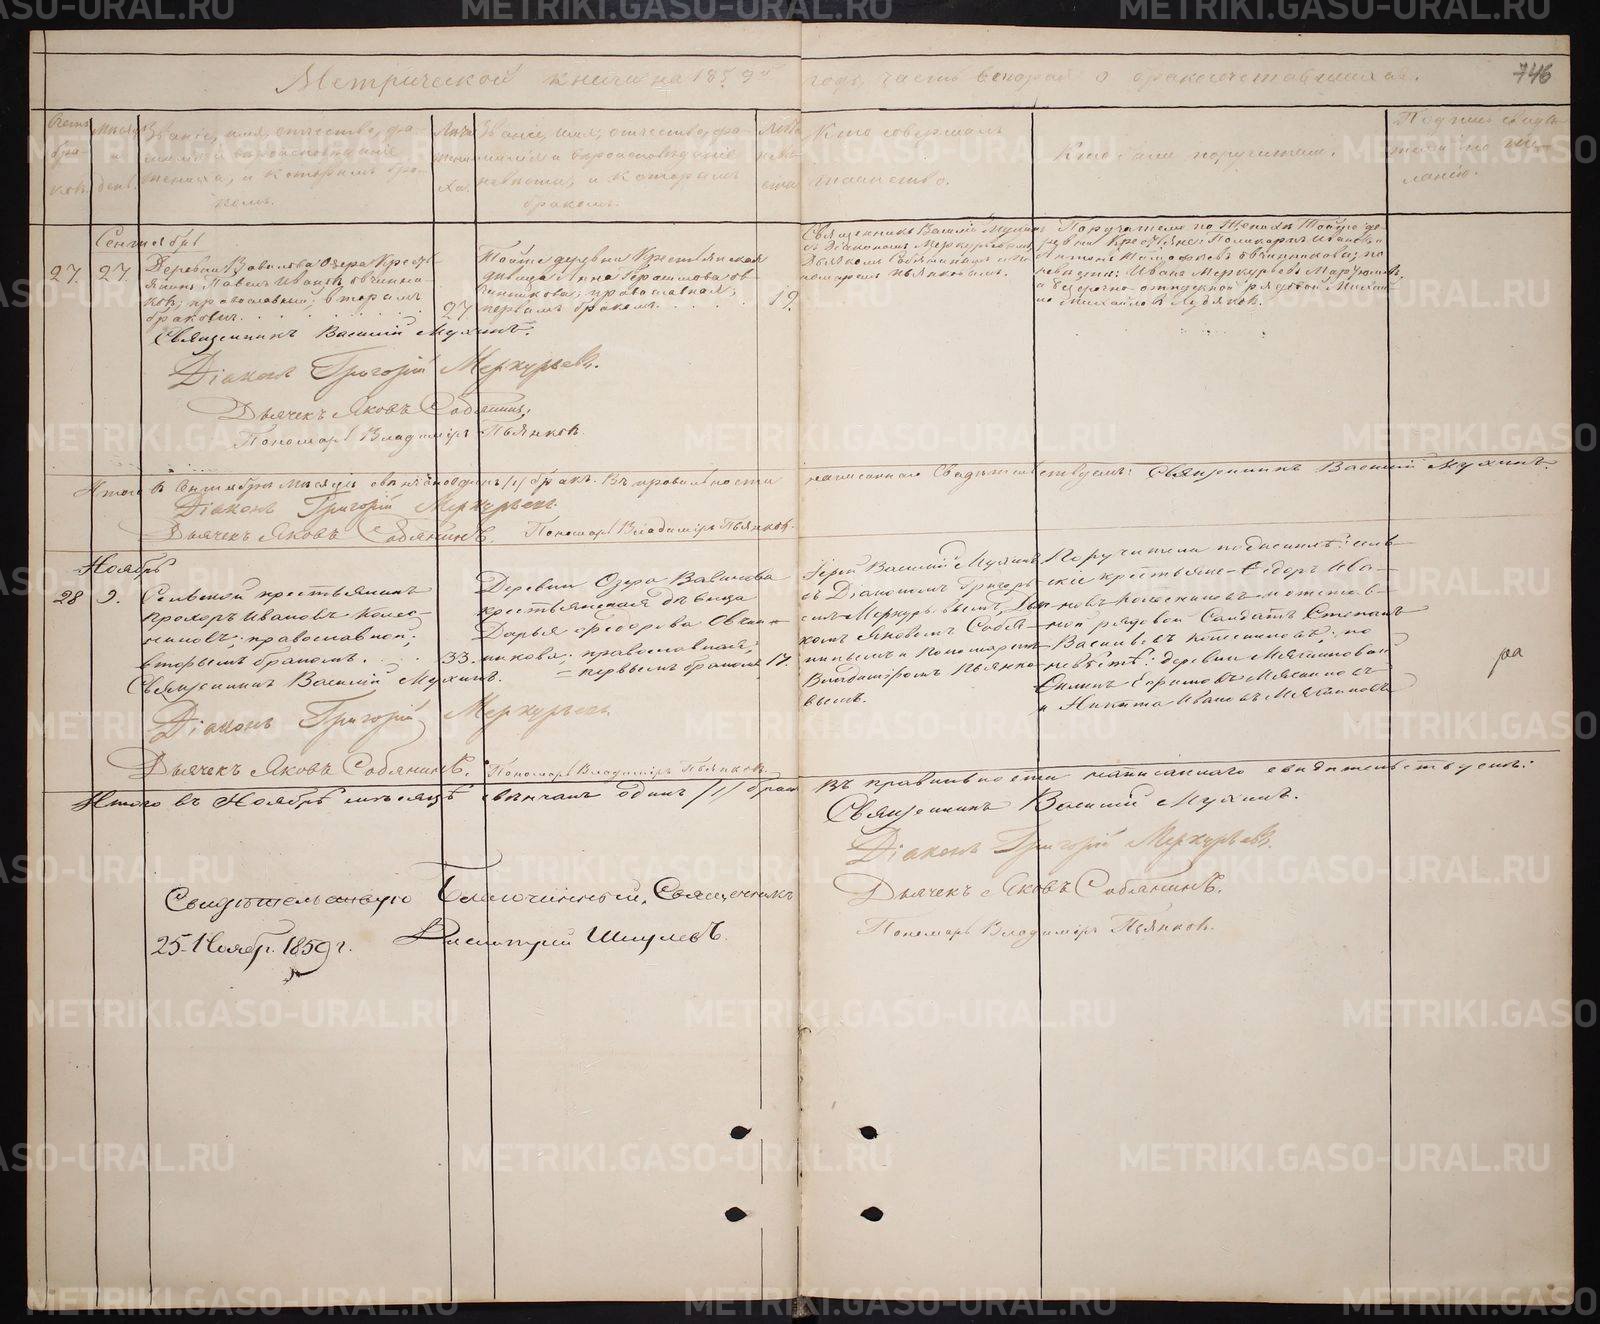 Метрической книги на 1859й годъ, часть вторая о бракосочетавшихся.
746
Счетъ браковъ.
Мѣсяцъ и день.
Званіе, имя, отчество, фа-
милія и вѣроисповѣданіе
жениха, и которымъ бра-
комъ.
Лѣта жениха.
Званіе, имя, отчество, фа-
милія и вѣроисповѣданіе
невѣсты, и которымъ
бракомъ.
Лѣта невѣсты
Кто совершалъ
таинство.
Кто были поручители.
Подпись свидѣ-
телей по же-
ланію.
Сентябрь
27.
27.
Деревни Вавилова Озера Кресть
янинъ Павелъ Ивановъ Овчинни-
ковъ; православный; вторымъ
бракомъ.
27
Тойже деревни Крестьянская
дѣвица Анна Герасимова Ов-
чинникова; православная;
первымъ бракомъ.
19.
Священникъ Василій Мухинъ
съ Діакономъ Меркурьевымъ,
Дьячкомъ Собянинымъ и По-
номаремъ Пьянковымъ.
Поручители по Женихѣ: Тойже де-
ревни Крестьяне: Поликарпъ Ивановъ и
Антонъ Тимофѣевъ Овчинниковы; по
невѣстѣ: Иванъ Меркурьевъ
и безсрочно-отпускной рядовой Михаи-
ло Михайловъ
Священникъ Василій Мухинъ.
Діаконъ Григорій Меркурьевъ.
Дьячекъ Яковъ Собянинъ.
Пономарь Владиміръ Пьянковъ.
Итого въ Сентябрѣ мѣсяцѣ свѣнчанъ одинъ /1/ бракъ. Въ правильности написаннаго Свидѣтельствуемъ: Священникъ Василій Мухинъ.
Діаконъ Григорій Меркурьевъ.
Дьячекъ Яковъ Собянинъ. Пономарь Владиміръ Пьянковъ.
Ноябрь
28
9.
Сельской крестьянинъ
Прохоръ Ивановъ Колес-
никовъ; православной;
вторымъ бракомъ.
33.
Деревни Озера Вавилова
крестьянская дѣвица
Дарья Федорова Овчин-
никова; православная;
первымъ бракомъ
17.
Іерей Василій Мухинъ
съ Діакономъ Григорь-
емъ Меркурьевымъ, Дьяч-
комъ Яковомъ Собя-
нинымъ и Пономаремъ
Владиміромъ Пьянко-
вымъ.
Поручители по женихѣ: сель-
скіе крестьяне Сидоръ Ива-
новъ Колесниковъ
рядовой Солдатъ Степанъ
Васильевъ Колесниковъ; по
невѣстѣ: деревни
и Никита Ивановъ
Священникъ Василій Мухинъ.
Діаконъ Григорій Меркурьевъ.
Дьячекъ Яковъ Собянинъ. Пономарь Владиміръ Пьянковъ.
Итого въ Ноябрѣ мѣсяцѣ свѣнчанъ одинъ /1/ бракъ
Въ правильности написаннаго свидѣтельствуемъ:
Священникъ Василій Мухинъ.
Діаконъ Григорій Меркурьевъ.
Дьячекъ Яковъ Собянинъ.
Пономарь Владиміръ Пьянковъ.
Свидѣтельствую Благочинный, Священникъ
25 Ноябр. 1859 г. Димитрій Шмулевъ.
METRIKI.GASO-URAL.RU